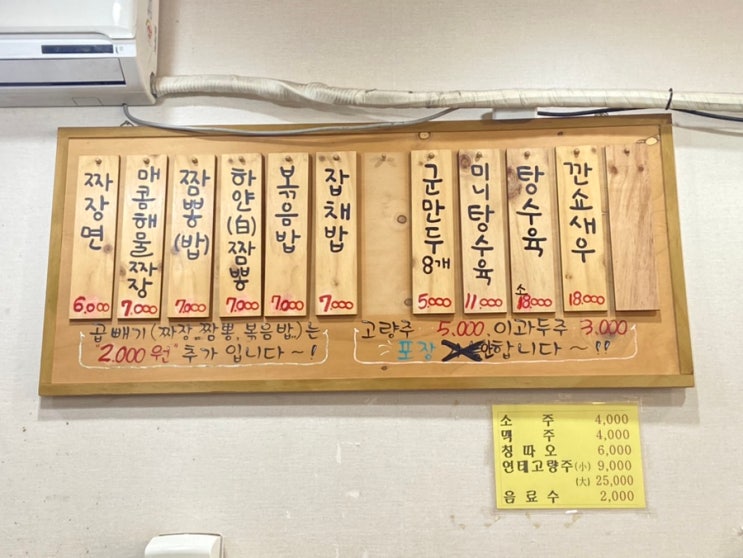 짜장면
6,000
매콤해물짜장
7,000
짬뽕(밥)
7,000
하얀(白)짬뽕
7,000
볶음밥
7,000
잡채밥
7,000
군만두
8개
5,000
미니탕수육
11,000
탕수육
소
18,000
깐쇼새우
18,000
곱빼기(짜장, 짬뽕, 볶음밥)는
2,000원 추가 입니다~!
고량주 5,000, 이과두주 3,000
포장 안합니다~!!
소 주 4,000
맥 주 4,000
칭따오 6,000
연태고량주(小) 9,000
(大) 25,000
음료수 2,000